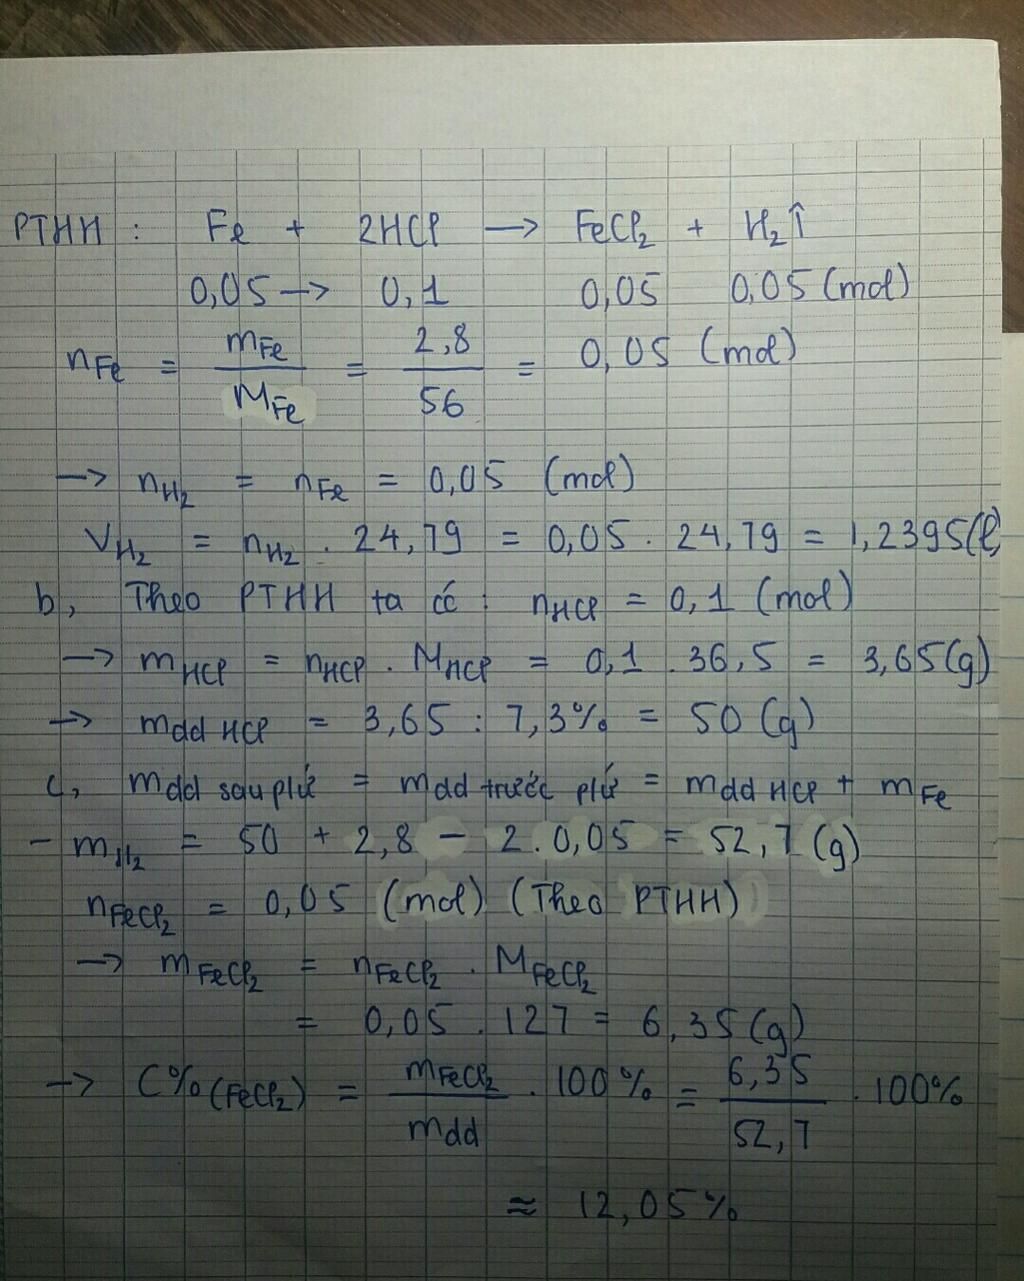 PTHH : Fe + 2HCl → FeCl₂ + H₂↑
0,05 → 0,1 0,05 0,05 (mol)
nFe = mFe / MFe = 2,8 / 56 = 0,05 (mol)
→ nH₂ = nFe = 0,05 (mol)
VH₂ = nH₂ . 24,79 = 0,05 . 24,79 = 1,2395(l)
b, Theo PTHH ta có : nHCl = 0,1 (mol)
→ mHCl = nHCl . MHCl = 0,1 . 36,5 = 3,65(g)
→ mdd HCl = 3,65 : 7,3% = 50 (g)
c, mdd sau pứ = mdd trước pứ = mdd HCl + mFe
- mH₂ = 50 + 2,8 - 2.0,05 = 52,7 (g)
nFeCl₂ = 0,05 (mol) (Theo PTHH)
→ mFeCl₂ = nFeCl₂ . MFeCl₂
= 0,05 . 127 = 6,35(g)
→ C%(FeCl₂) = mFeCl₂ / mdd . 100% = 6,35 / 52,7 . 100%
≈ 12,05%